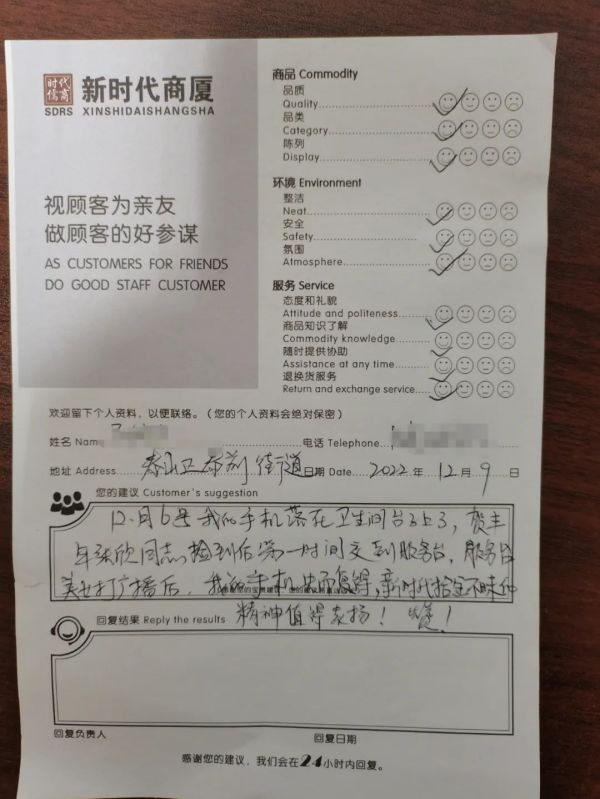 时代
儒商
SDRS
新时代商厦
XINSHIDAISHANGSHA
视顾客为亲友
做顾客的好参谋
AS CUSTOMERS FOR FRIENDS
DO GOOD STAFF CUSTOMER
商品 Commodity
品质
Quality
品类
Category
陈列
Display
环境 Environment
整洁
Neat
安全
Safety
氛围
Atmosphere
服务 Service
态度和礼貌
Attitude and politeness
商品知识了解
Commodity knowledge
随时提供协助
Assistance at any time
退换货服务
Return and exchange service
欢迎留下个人资料，以便联络。（您的个人资料会绝对保密）
姓名 Name 电话 Telephone
地址 Address 泰山区 街道 日期 Date 2022 年 12 月 9 日
您的建议 Customer's suggestion
12月6号我的手机落在卫生间台子上了，贺丰
年 欣同志捡到后第一时间交到服务台，服务台
美女打广播后，我的手机失而复得，新时代拾金不昧的
精神值得表扬！赞！
回复结果 Reply the results
回复负责人 回复日期
感谢您的建议，我们会在24小时内回复。